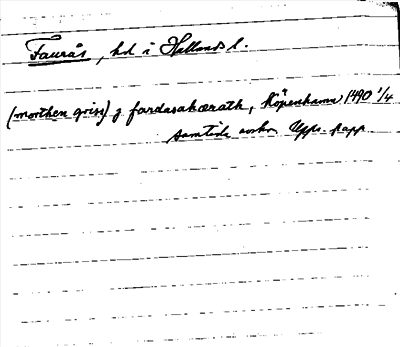 Faurås, hd i Hallands l.
(morthen griss) j fardasahærath, Köpenhamn 1490 1/4
samtida avskr Upps. papp.